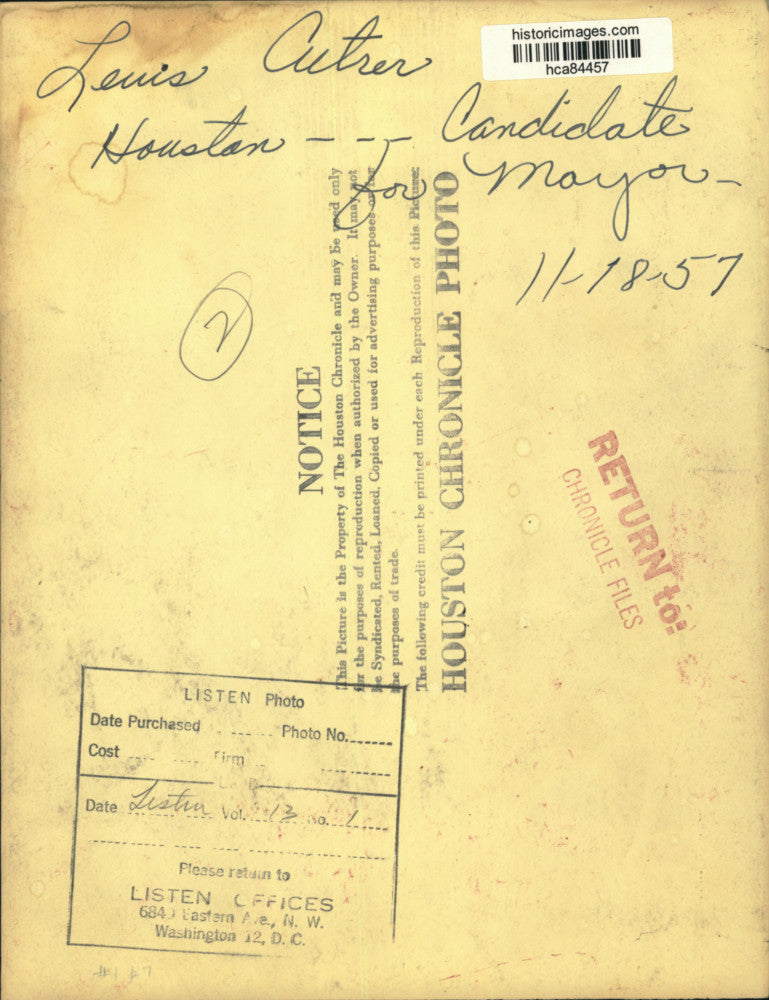 historicimages.com
hca84457
Lewis Cutrer
Houston - - - Candidate
for Mayor -
11-18-57
2
NOTICE
This Picture is the Property of The Houston Chronicle and may be used only
for the purposes of reproduction when authorized by the Owner. It may not
be Syndicated, Rented, Loaned, Copied or used for advertising purposes or for
the purposes of trade.
The following credit must be printed under each Reproduction of this Picture:
HOUSTON CHRONICLE PHOTO
RETURN to:
CHRONICLE FILES
LISTEN Photo
Date Purchased Photo No.
Cost Firm
Date Listen Vol. 13 No. 1
Please return to
LISTEN OFFICES
6840 Eastern Ave., N. W.
Washington 12, D. C.